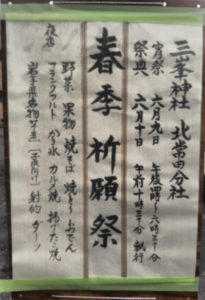 三峯神社 北常田分社
宵祭 六月九日 午後四時~六時三十分
祭典 六月十日 午前十時三十分 執行
春季祈願祭
夜店
野菜 果物 焼そば 焼とり おでん
フランクフルト かき氷 カルメ焼 揚げたこ焼
岩手県名物 射的 ダーツ